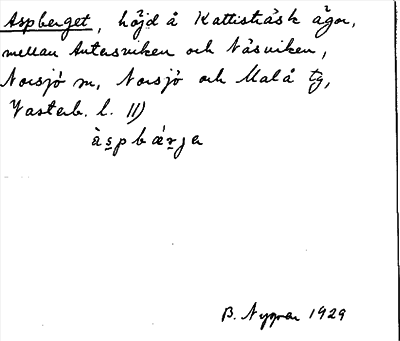 Aspberget, höjd å Kattisträsk ägor,
mellan Antesviken och Näsviken,
Norsjö sn, Norsjö och Malå tg,
Västerb. l. II)
àspbǽrjɘ
B. Nygren 1929